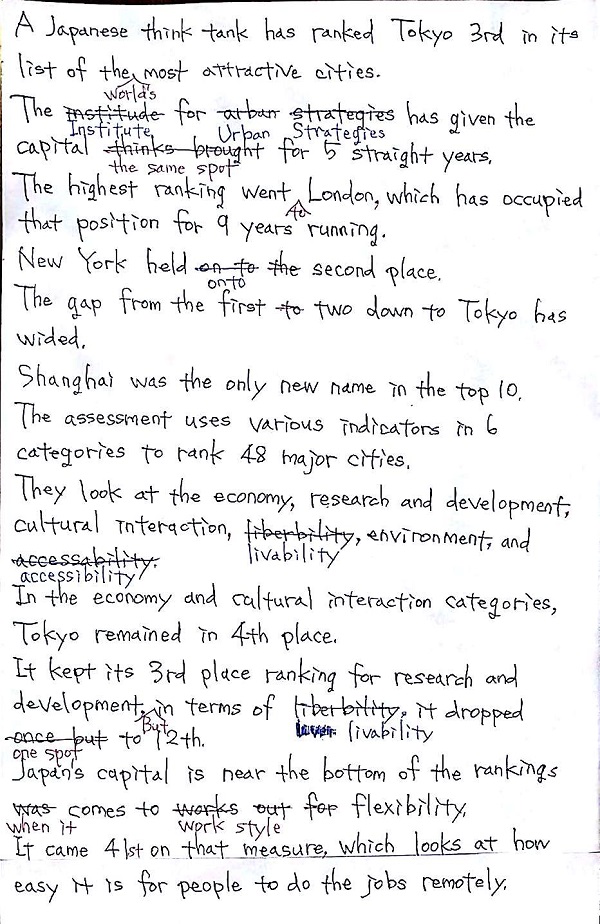 A Japanese think tank has ranked Tokyo 3rd in its
list of the most attractive cities.
World's
The institude for urban strategies has given the
Institute Urban Strategies
capital thinks brought for 5 straight years.
the same spot
The highest ranking went London, which has occupied
to
that position for 9 years running.
New York held on to the second place.
onto
The gap from the first to two down to Tokyo has
wided.
Shanghai was the only new name in the top 10.
The assessment uses various indicators in 6
categories to rank 48 major cities.
They look at the economy, research and development,
cultural interaction, liberbility, environment, and
livability
accessability.
accessibility
In the economy and cultural interaction categories,
Tokyo remained in 4th place.
It kept its 3rd place ranking for research and
development, in terms of liberbility, it dropped
But livability
once but to 12th.
one spot
Japan's capital is near the bottom of the rankings
was comes to works out for flexibility.
when it work style
It came 41st on that measure, which looks at how
easy it is for people to do the jobs remotely.